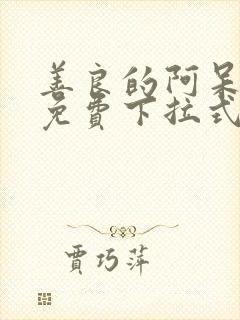 善良的阿呆
免費下拉式
賈巧萍